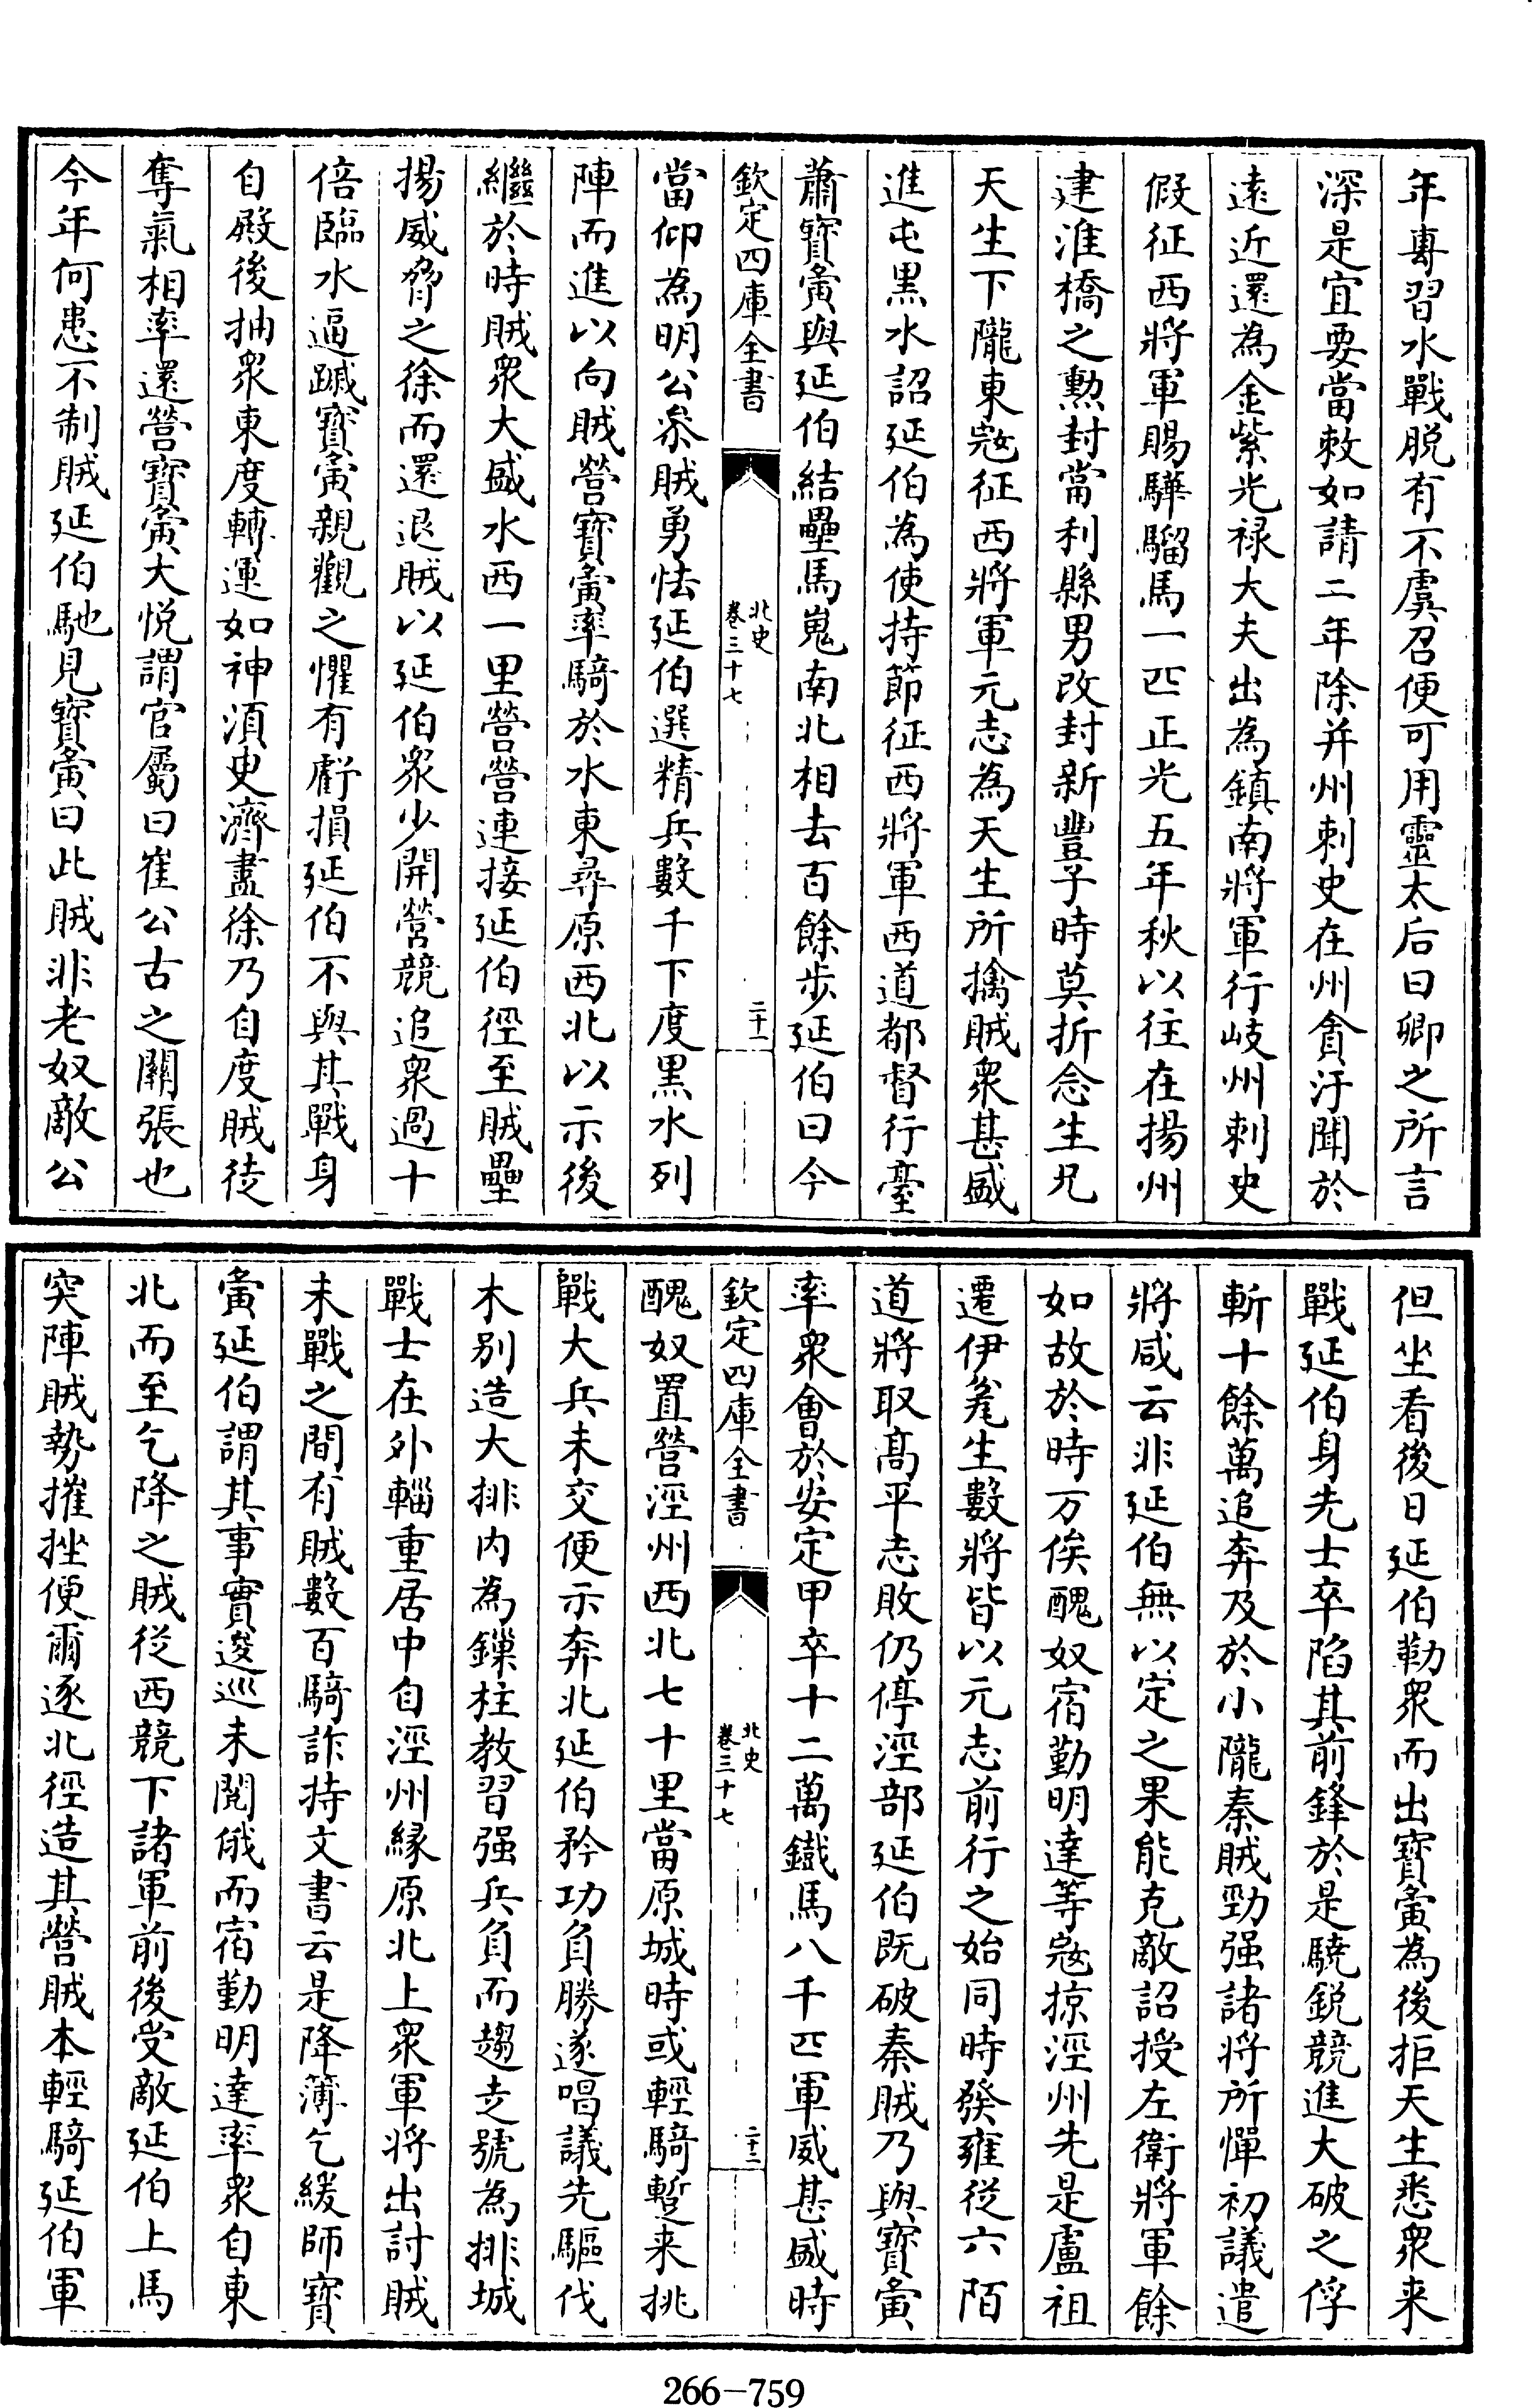 年專習水戰脱有不虞召便可用靈太后曰卿之所言
深是宜要當敕如請二年除并州刺史在州貪汙聞於
遠近還為金紫光禄大夫出為鎮南將軍行岐州刺史
假征西將軍賜驊騮馬一匹正光五年秋以往在揚州
建淮橋之勲封當利縣男改封新豐子時莫折念生兄
天生下隴東宼征西將軍元志為天生所擒賊衆甚盛
進屯黒水詔延伯為使持節征西將軍西道都督行臺
蕭寶夤與延伯結壘馬嵬南北相去百餘步延伯曰今
欽定四庫全書
北史
卷三十七
二十一
當仰為明公叅賊勇怯延伯選精兵數千下度黒水列
陣而進以向賊營寶夤率騎於水東尋原西北以示後
繼於時賊衆大盛水西一里營營連接延伯徑至賊壘
揚威脅之徐而還退賊以延伯衆少開營競追衆過十
倍臨水逼蹴寶夤親觀之懼有虧損延伯不與其戰身
自殿後抽衆東度轉運如神湏史濟盡徐乃自度賊徒
奪氣相率還營寶夤大悦謂官屬曰崔公古之關張也
今年何患不制賊延伯馳見寶夤曰此賊非老奴敵公
但坐看後日延伯勒衆而出寶夤為後拒天生悉衆来
戰延伯身先士卒陷其前鋒於是驍鋭競進大破之俘
斬十餘萬追奔及於小隴秦賊勁强諸將所憚初議遣
將咸云非延伯無以定之果能克敵詔授左衛將軍餘
如故於時万俟醜奴宿勤明達等宼掠涇州先是盧祖
遷伊瓫生數將皆以元志前行之始同時發雍従六陌
道將取髙平志敗仍停涇部延伯既破秦賊乃與寶夤
率衆會於安定甲卒十二萬鐵馬八千匹軍威甚盛時
欽定四庫全書
北史
卷三十七
二十二
醜奴置營涇州西北七十里當原城時或輕騎蹔来挑
戰大兵未交便示奔北延伯矜功負勝遂唱議先驅伐
木别造大排内為鏁柱教習强兵負而趨走號為排城
戰士在外輜重居中自涇州縁原北上衆軍將出討賊
未戰之間有賊數百騎詐持文書云是降簿乞緩師寶
夤延伯謂其事實逡巡未閲俄而宿勤明達率衆自東
北而至乞降之賊従西競下諸軍前後受敵延伯上馬
突陣賊勢摧挫便爾逐北徑造其營賊本輕騎延伯軍
266-759